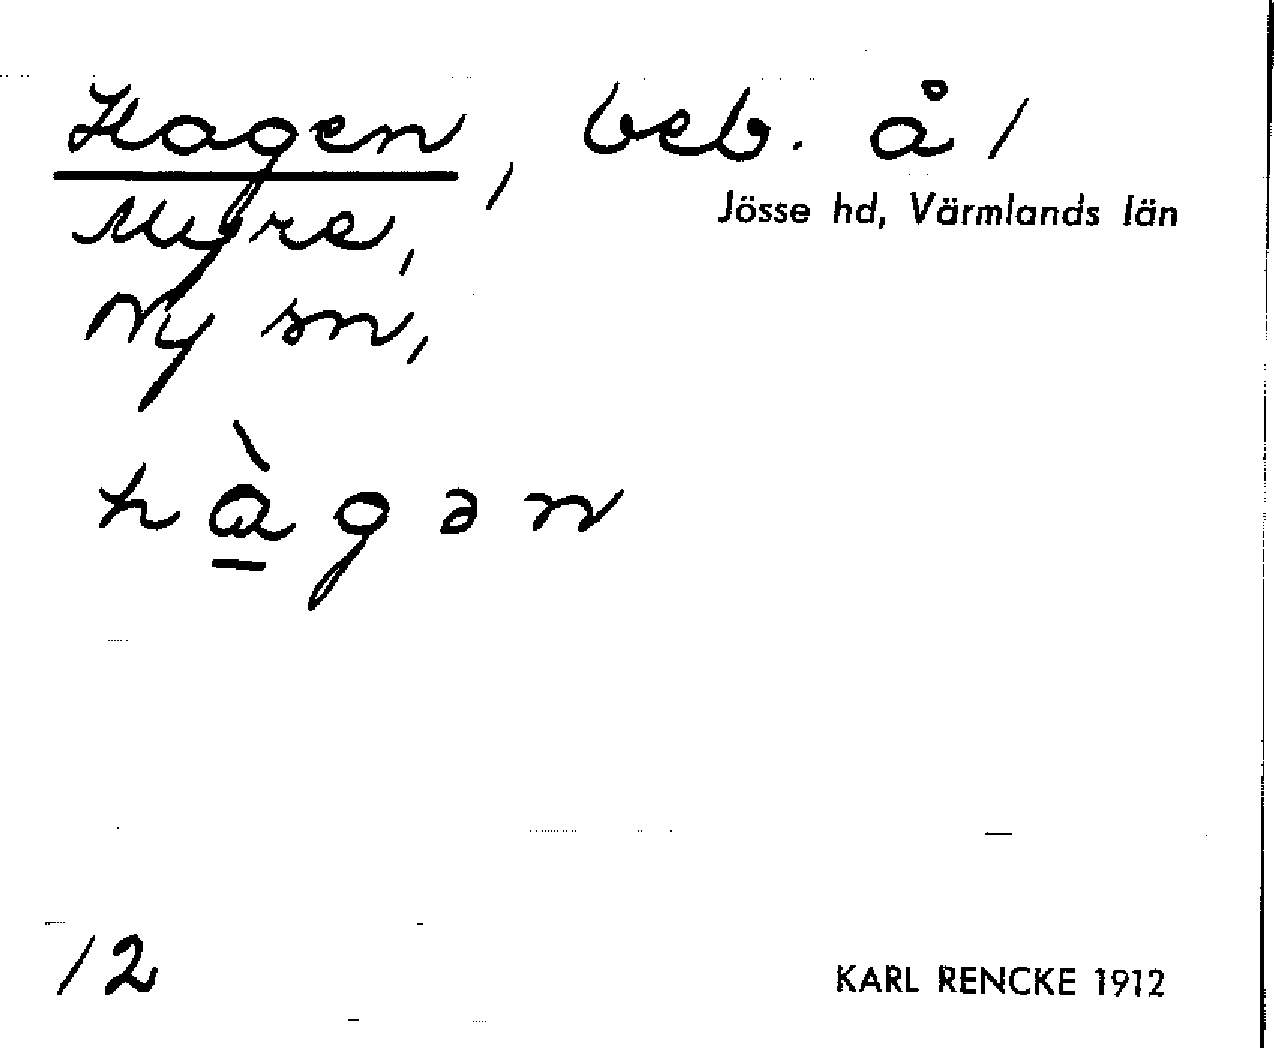 Hagen, beb. å /
Jösse hd, Värmlands län
Myre,
Ny sn,
hàgən
12
KARL RENCKE 1912